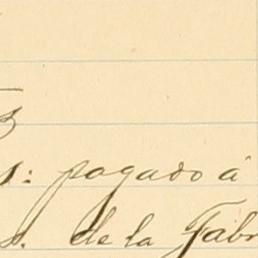 pagado á
de la Fabr